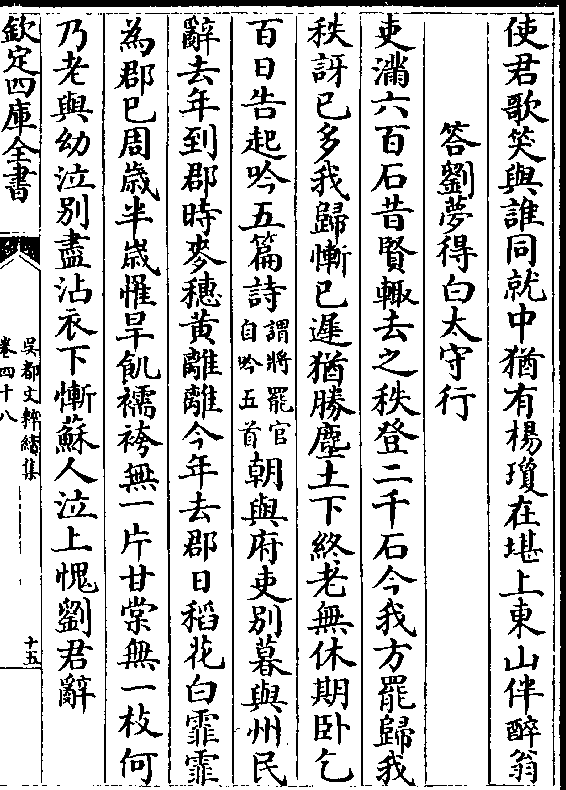 使君歌笑與誰同就中猶有楊瓊在堪上東山伴醉翁
答劉夢得白太守行
吏滿六百石昔賢輙去之秩登二千石今我方罷歸我
秩訝已多我歸慚已遲猶勝塵土下終老無休期卧乞
百日告起吟五篇詩謂將罷官自吟五首朝與府吏别暮與州民
辭去年到郡時麥穗黄離離今年去郡日稻花白霏霏
為郡已周歳半歳惟旱飢襦袴無一片甘棠無一枝何
乃老與幼泣别盡沾衣下慚蘇人泣上愧劉君辭
欽定四庫全書
吳都文粹續集
卷四十八
十五